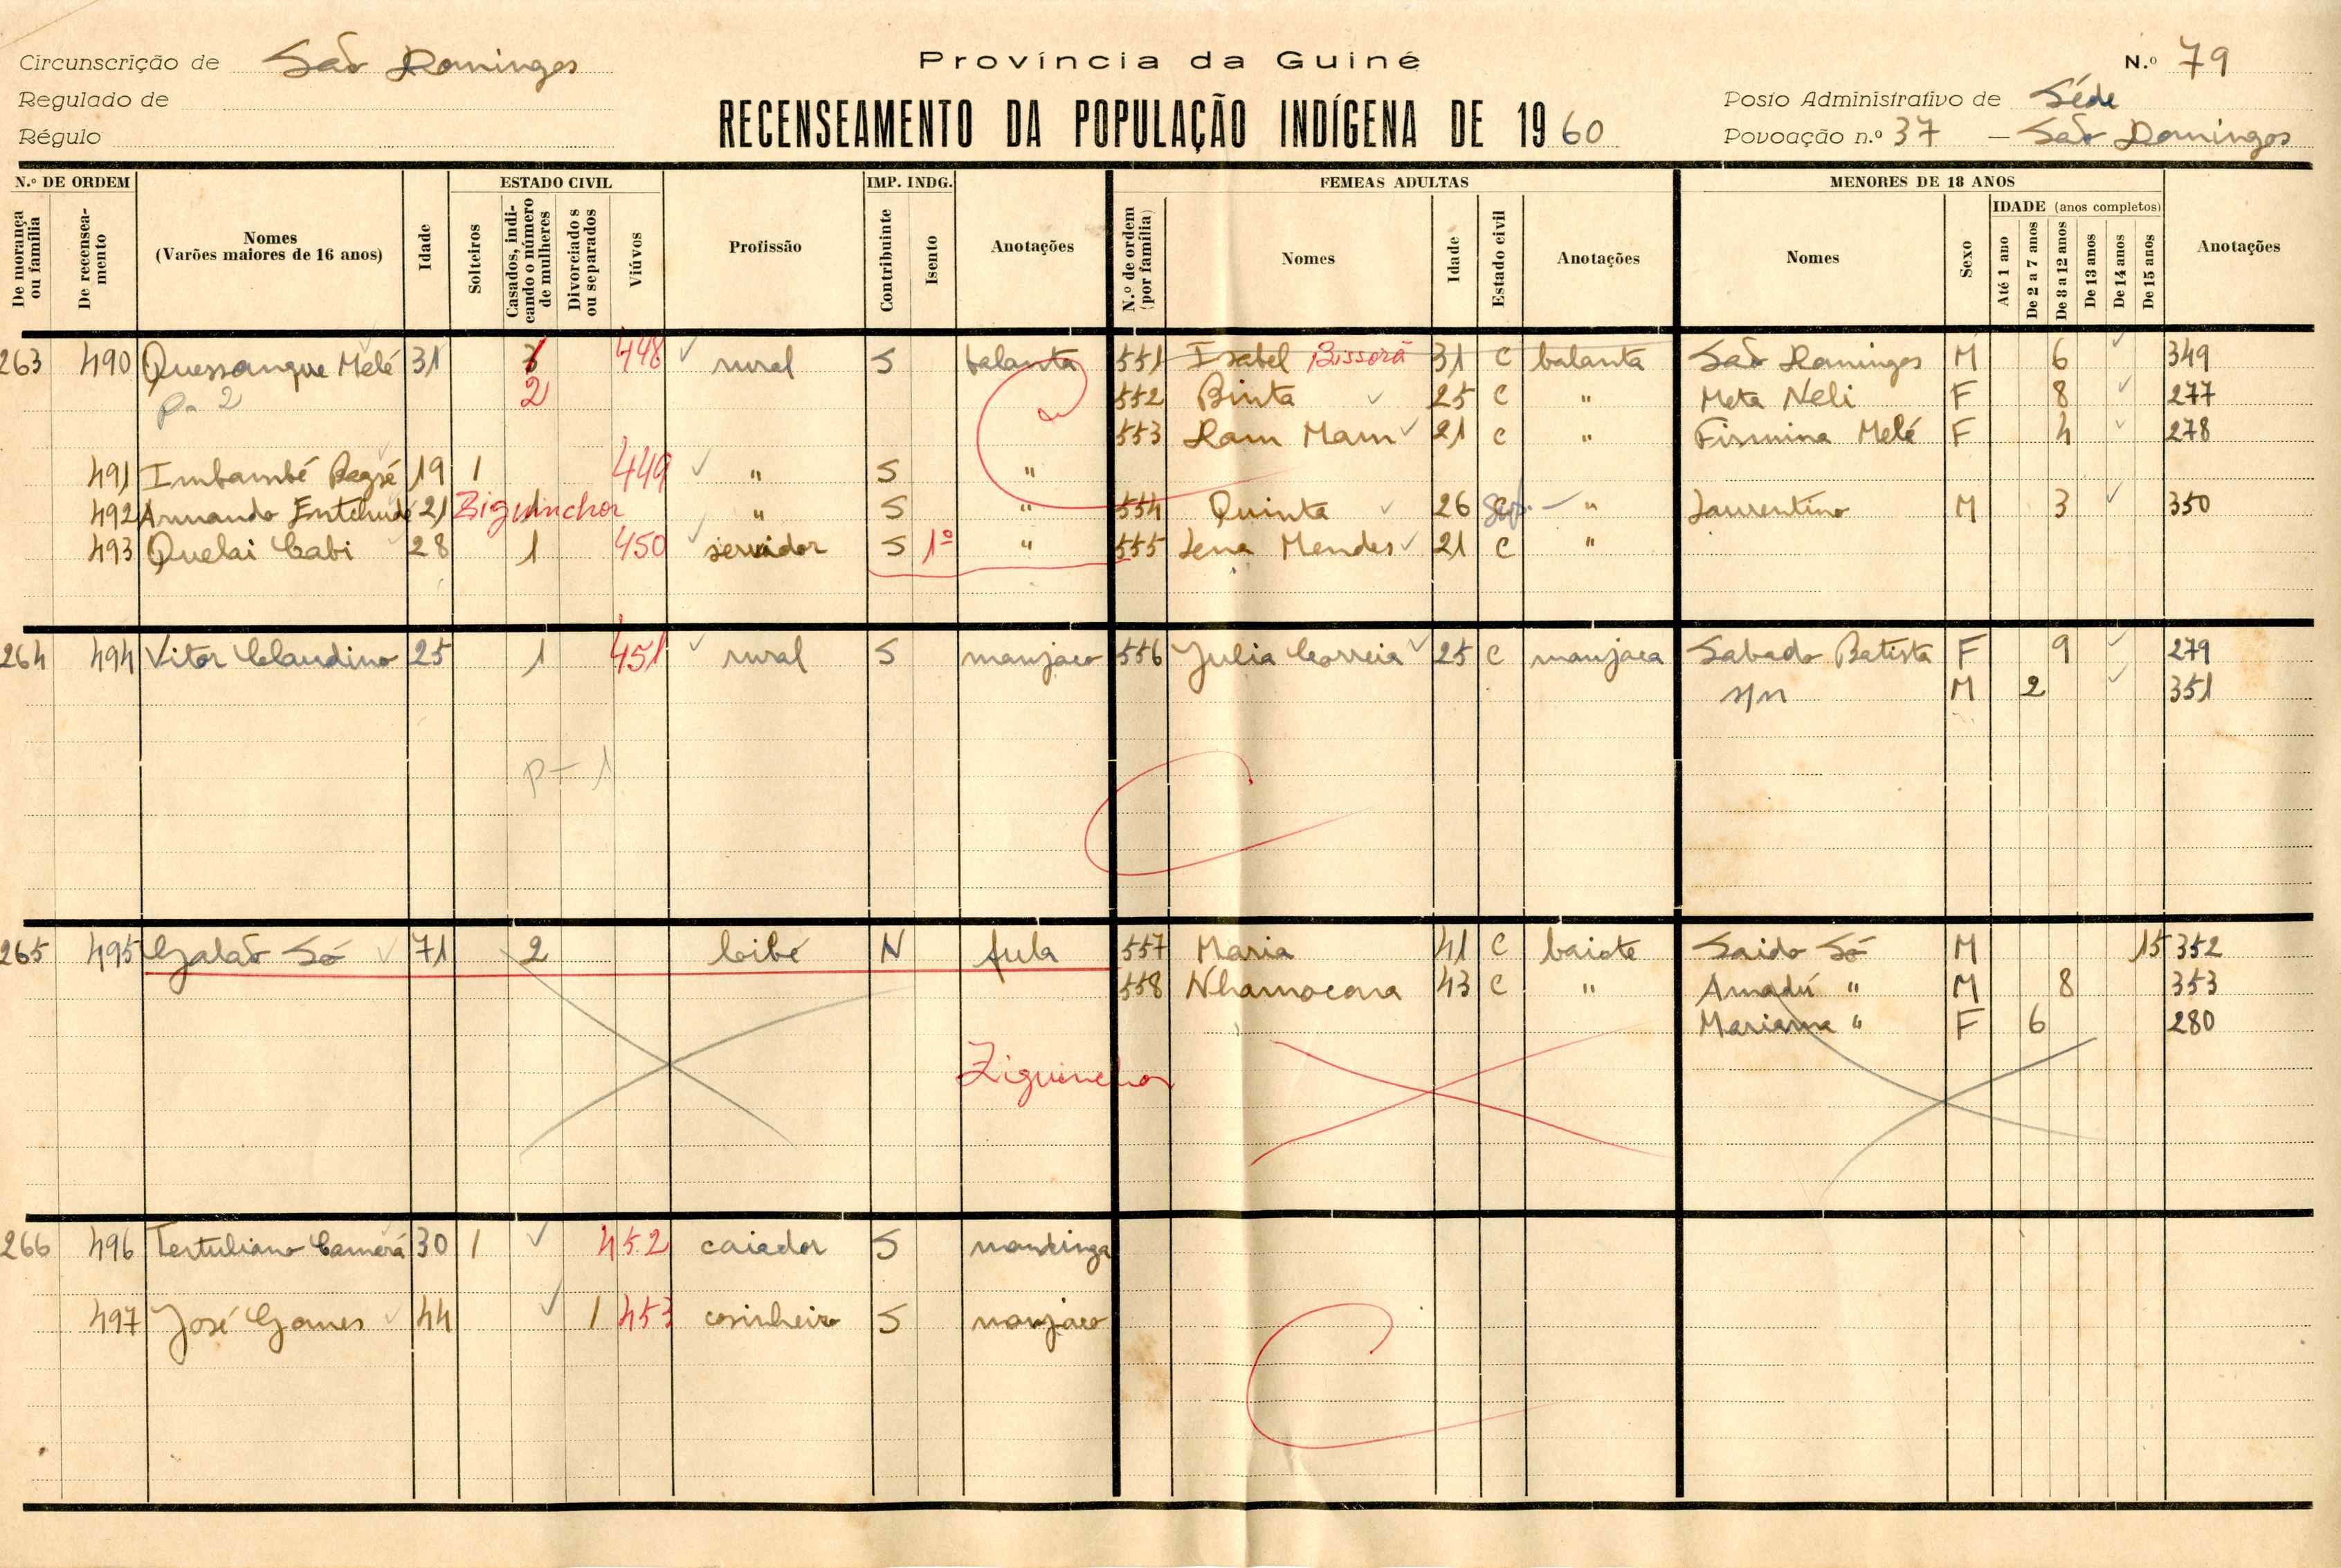 Circunscrição de São Domingos
Província da Guiné
N.º 79
Regulado de
Posto Administrativo de Séde
Régulo
RECENSEAMENTO DA POPULAÇÃO INDÍGENA DE 1960
Povoação n.º 37 — São Domingos
N.º DE ORDEM
De morança ou família
De recenseamento
Nomes
(Varões maiores de 16 anos)
Idade
ESTADO CIVIL
Solteiros
Casados, indicando o número de mulheres
Divorciados ou separados
Viúvos
Profissão
IMP. INDG.
Contribuinte
Isento
Anotações
FEMEAS ADULTAS
N.º de ordem (por família)
Nomes
Idade
Estado civil
Anotações
MENORES DE 18 ANOS
Nomes
Sexo
IDADE (anos completos)
Até 1 ano
De 2 a 7 anos
De 8 a 12 anos
De 13 anos
De 14 anos
De 15 anos
Anotações
263 490 Quessangue Melé 31 3 448 rural S balanta 551 Isabel Bissorã 31 C balanta São Domingos M 6 349
2 552 Binta 25 C " Meta Neli F 8 277
553 Ram Mam 21 C " Firmina Melé F 4 278
491 Imbambé 19 1 449 " S "
492 Armando 21 Ziguinchor 1 " S " 554 Quinta 26 Sep. — " Laurentino M 3 350
493 Quelai Cabi 28 1 450 servidor S 1º " 555 Lena Mendes 21 C "
264 494 Vitor Claudino 25 1 451 rural S manjaco 556 Julia Correia 25 C manjaca Sabado Batista F 9 279
s/n M 2 351
P – 1
265 495 Galão Só 71 2 N fula 557 Maria 41 C baiote Saido Só M 15 352
558 Nhamocona 43 C " Amadú " M 8 353
Mariama " F 6 280
Ziguinchor
266 496 Tertuliano Camará 30 1 452 caiador S mandinga
497 José Gomes 44 1 453 cosinheiro S manjaco